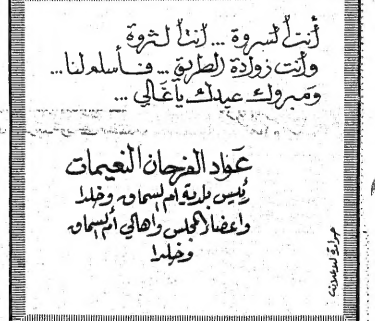 أنت السروة ... أنت الثروة
وأنت زوادة الطريق ... فأسلم لنا ...
ومبروك عيدك يا غالي ...
عواد الفرحان النعيمات
رئيس بلدية أم السماق وخلدا
واعضاء المجلس واهالي أم السماق
وخلدا